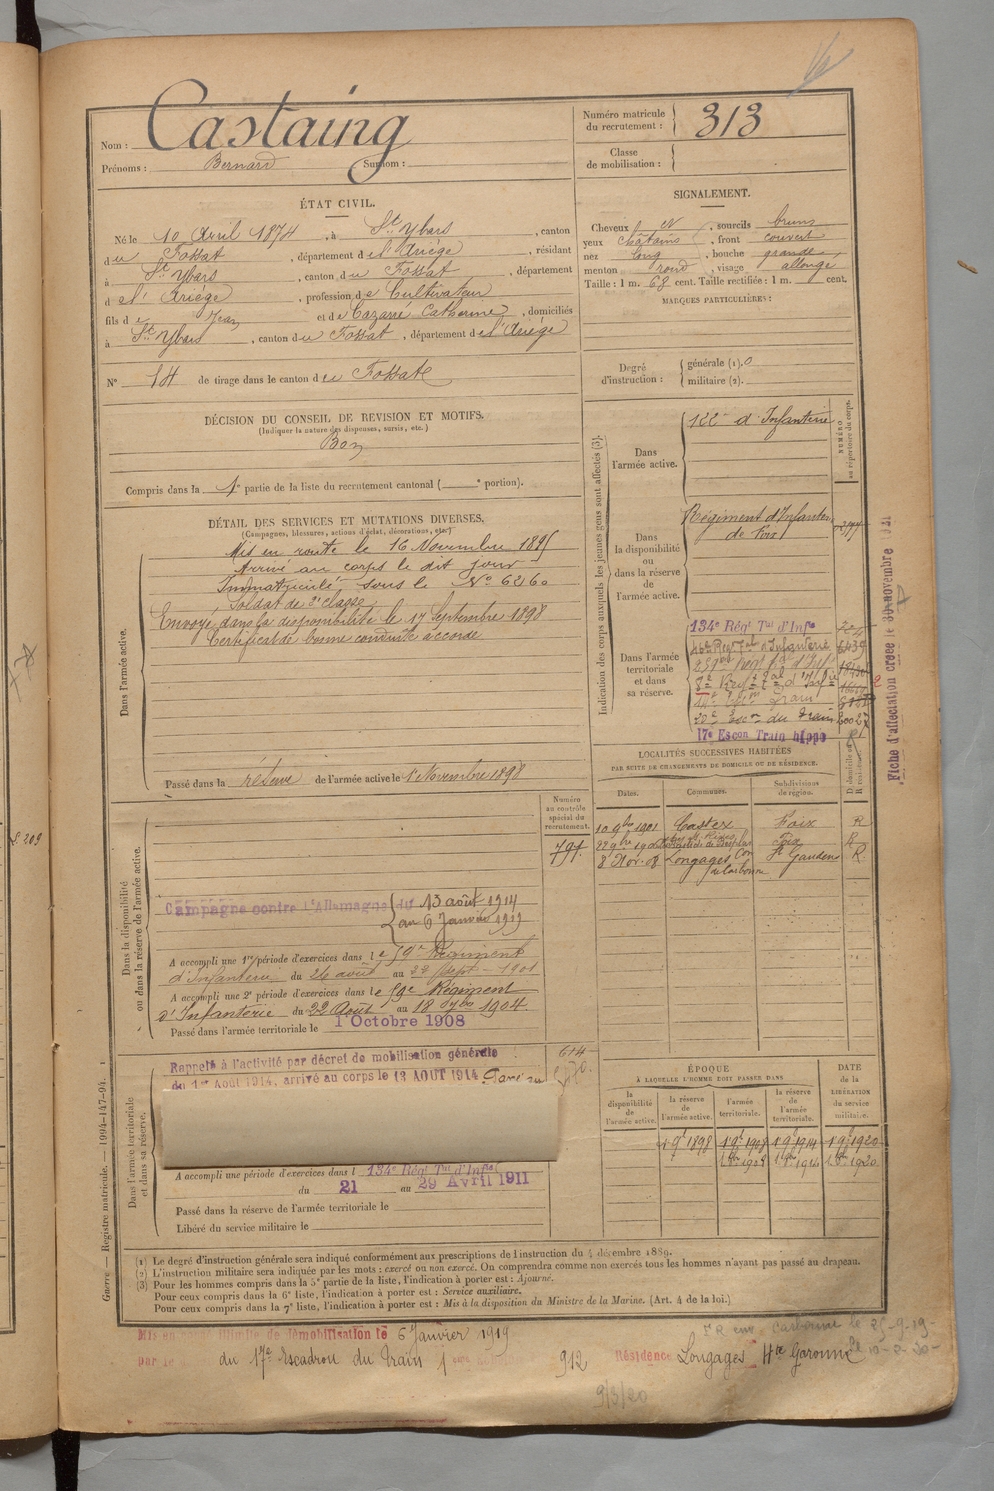 Nom : Castaing
Prénoms : Bernard Surnom :
Numéro matricule du recrutement : 313
Classe de mobilisation :
ÉTAT CIVIL.
Né le 10 Avril 1874, à St Ybars, canton
du Fossat, département de l'Ariège, résidant
à St Ybars, canton du Fossat, département
d el' Ariège, profession de Cultivateur
fils de Jean et de Cazarre Catherine, domiciliés
à St Ybars, canton du Fossat, département de l'Ariège
N° 14 de tirage dans le canton du Fossat
SIGNALEMENT.
Cheveux et, sourcils bruns
yeux châtains, front couvert
nez long, bouche grande
menton rond, visage allongé
Taille : 1 m. 68 cent. Taille rectifiée : 1 m. cent.
MARQUES PARTICULIÈRES :
Degré d'instruction : générale (1). 0
militaire (2).
DÉCISION DU CONSEIL DE REVISION ET MOTIFS.
(Indiquer la nature des dispenses, sursis, etc.)
Bon
Compris dans la 1e partie de la liste du recrutement cantonal ( e portion).
DÉTAIL DES SERVICES ET MUTATIONS DIVERSES.
(Campagnes, blessures, actions d'éclat, décorations, etc.)
Dans l'armée active.
Mis en route le 16 Novembre 1895
Arrivé au corps le dit jour
Immatriculé sous le N° 6260
Soldat de 2e classe
Envoyé dans la disponibilité le 17 Septembre 1898
Certificat de bonne conduite accordé
Passé dans la réserve de l'armée active le 1 Novembre 1898
Indication des corps auxquels les jeunes gens sont affectés (3).
NUMÉRO au répertoire du corps.
Dans l'armée active.
122e d'Infanterie
Dans la disponibilité ou dans la réserve de l'armée active.
Régiment d'Infanterie
de Foix
Dans l'armée territoriale et dans sa réserve.
134e Régt Tal d'Infie
20e Escon du Train
17e Escon Train hippo
Fiche d'affectation créée le 30 novembre 1921
LOCALITÉS SUCCESSIVES HABITÉES
PAR SUITE DE CHANGEMENTS DE DOMICILE OU DE RÉSIDENCE.
Dates. Communes. Subdivisions de région. D domicile ou R résidence.
10 9bre 1901 Castex Foix R
8 Nov. 08 Longages Con de Carbonne St Gaudens R
Numéro au contrôle spécial du recrutement.
791
Dans la disponibilité ou dans la réserve de l'armée active.
Campagne contre l'Allemagne du 13 août 1914
au 6 Janvier 1919
A accompli une 1re période d'exercices dans le 59e Régiment
d'Infanterie du 26 août au 22 Sept 1901
A accompli une 2e période d'exercices dans le 59e Régiment
d'Infanterie du 22 Août au 18 7bre 1904.
Passé dans l'armée territoriale le 1 Octobre 1908
Dans l'armée territoriale et dans sa réserve.
Rappelé à l'activité par décret de mobilisation générale
du 1er Août 1914, arrivé au corps le 13 AOUT 1914 Passé au
614
A accompli une période d'exercices dans l 134e Régt Tal d'Infie
du 21 au 29 Avril 1911
Passé dans la réserve de l'armée territoriale le
Libéré du service militaire le
ÉPOQUE
À LAQUELLE L'HOMME DOIT PASSER DANS
DATE de la LIBÉRATION du service militaire.
la disponibilité de l'armée active. la réserve de l'armée active. l'armée territoriale. la réserve de l'armée territoriale.
1 9e 1898 1 9e 1908 1 9e 1914 1 9e 1920
(1) Le degré d'instruction générale sera indiqué conformément aux prescriptions de l'instruction du 4 décembre 1889.
(2) L'instruction militaire sera indiquée par les mots : exercé ou non exercé. On comprendra comme non exercés tous les hommes n'ayant pas passé au drapeau.
(3) Pour les hommes compris dans la 5e partie de la liste, l'indication à porter est : Ajourné.
Pour ceux compris dans la 6e liste, l'indication à porter est : Service auxiliaire.
Pour ceux compris dans la 7e liste, l'indication à porter est : Mis à la disposition du Ministre de la Marine. (Art. 4 de la loi.)
Guerre — Registre matricule. — 1994-147-94.
Mis en congé illimité de démobilisation le 6 Janvier 1919
par le du 17e Escadron du Train 912 Résidence Longages Hte Garonne
9/3/20